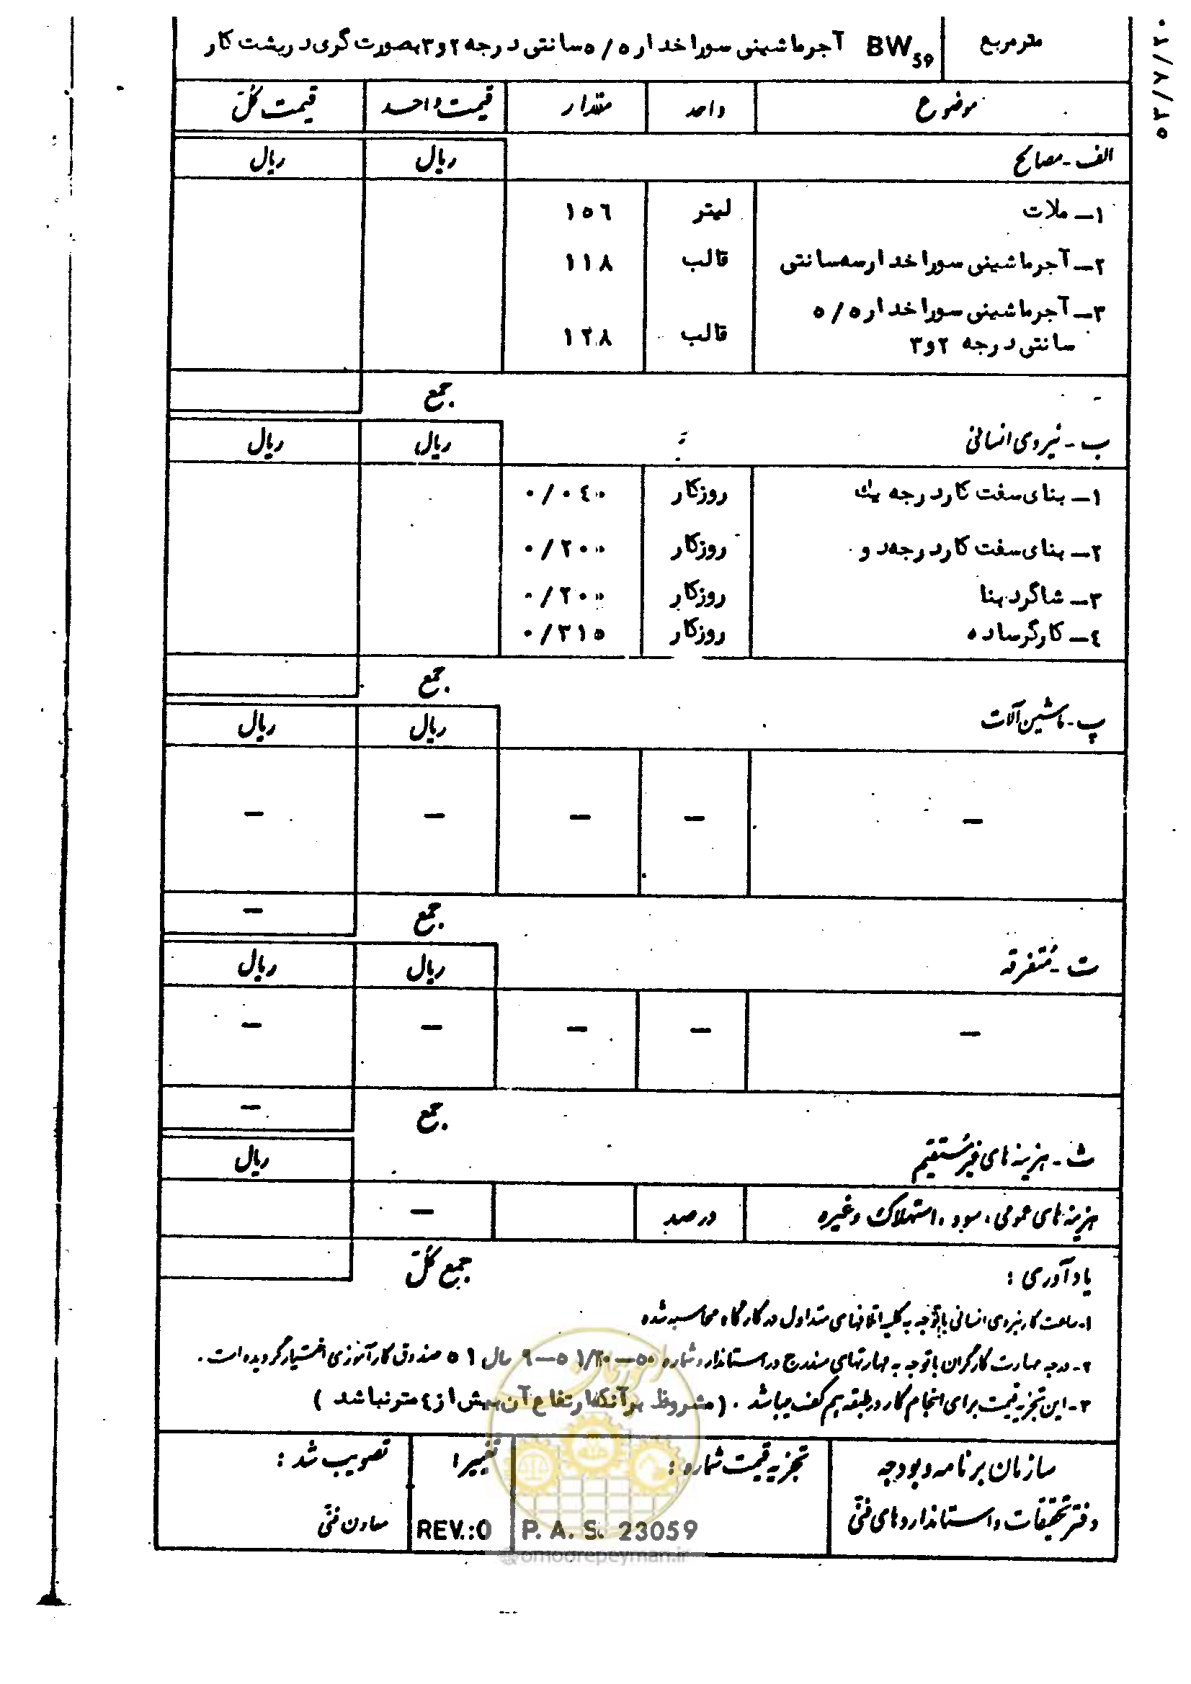 ۵۳/۷/۲۰
مترمربع BW59 آجرماشینی سوراخدار ۵/۵ سانتی درجه ۲و۳ بصورت گری درپشت کار
موضوع واحد مقدار قیمت واحد قیمت کل
الف - مصالح ریال ریال
۱- ملات لیتر ۱۵۶
۲- آجرماشینی سوراخدارسه سانتی قالب ۱۱۸
۳- آجرماشینی سوراخدار ۵/۵
سانتی درجه ۲و۳ قالب ۱۲۸
جمع
ب - نیروی انسانی ریال ریال
۱- بنای سفت کاردرجه یك روزکار ۰/۰۴۰
۲- بنای سفت کاردرجه دو روزکار ۰/۲۰۰
۳- شاگردبنا روزکار ۰/۲۰۰
۴- کارگرساده روزکار ۰/۳۱۵
جمع
پ - ماشین آلات ریال ریال
- - - - -
جمع -
ت - متفرقه ریال ریال
- - - - -
جمع -
ث - هزینه های غیرمستقیم ریال
هزینه های عمومی، سود، استهلاک وغیره درصد -
جمع کل
یادآوری :
۱- ساعت کارنیروی انسانی باتوجه به کلیه اتلافهای متداول در کارگاه محاسبه شده
۲- درجه مهارت کارگران باتوجه به مهارتهای مندرج در استاندارد شماره ۵۵-۵۱/۳۰-۹ سال ۵۱ صندوق کارآموزی اختیارگردیده است.
۳- این تجزیه قیمت برای انجام کار در طبقه هم کف میباشد . (مشروط برآنکه ارتفاع آن بیش از ۴ مترنباشد )
سازمان برنامه و بودجه تجزیه قیمت شماره : تغییر: تصویب شد :
دفتر تحقیقات و استانداردهای فنی P. A. S. 23059 REV.:0 معاون فنی
@omoorepeyman.ir